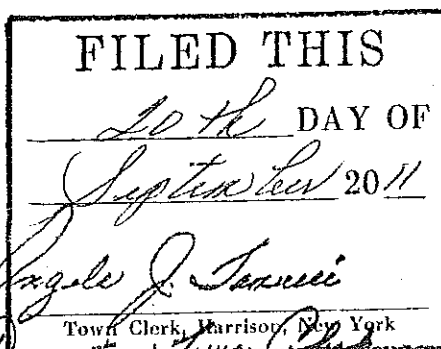 FILED THIS
20th DAY OF
September 2011
Angelo J.
Town Clerk, Harrison, New York